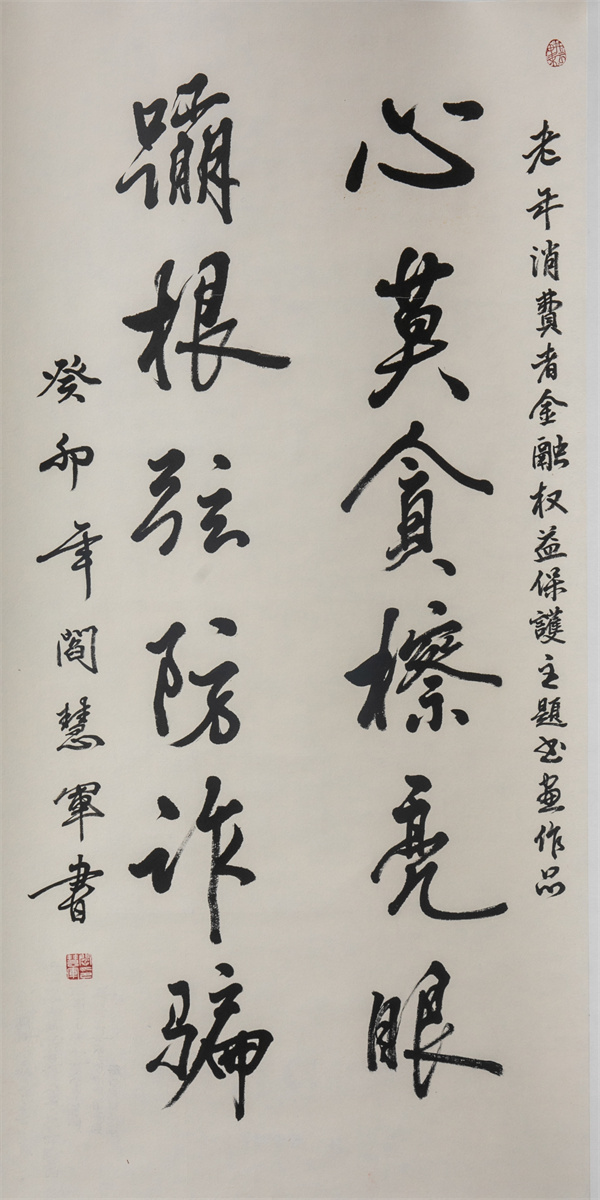 老年消費者金融权益保護主題书画作品
心莫貪擦亮眼
蹦根弦防诈骗
癸卯年閻慧軍書